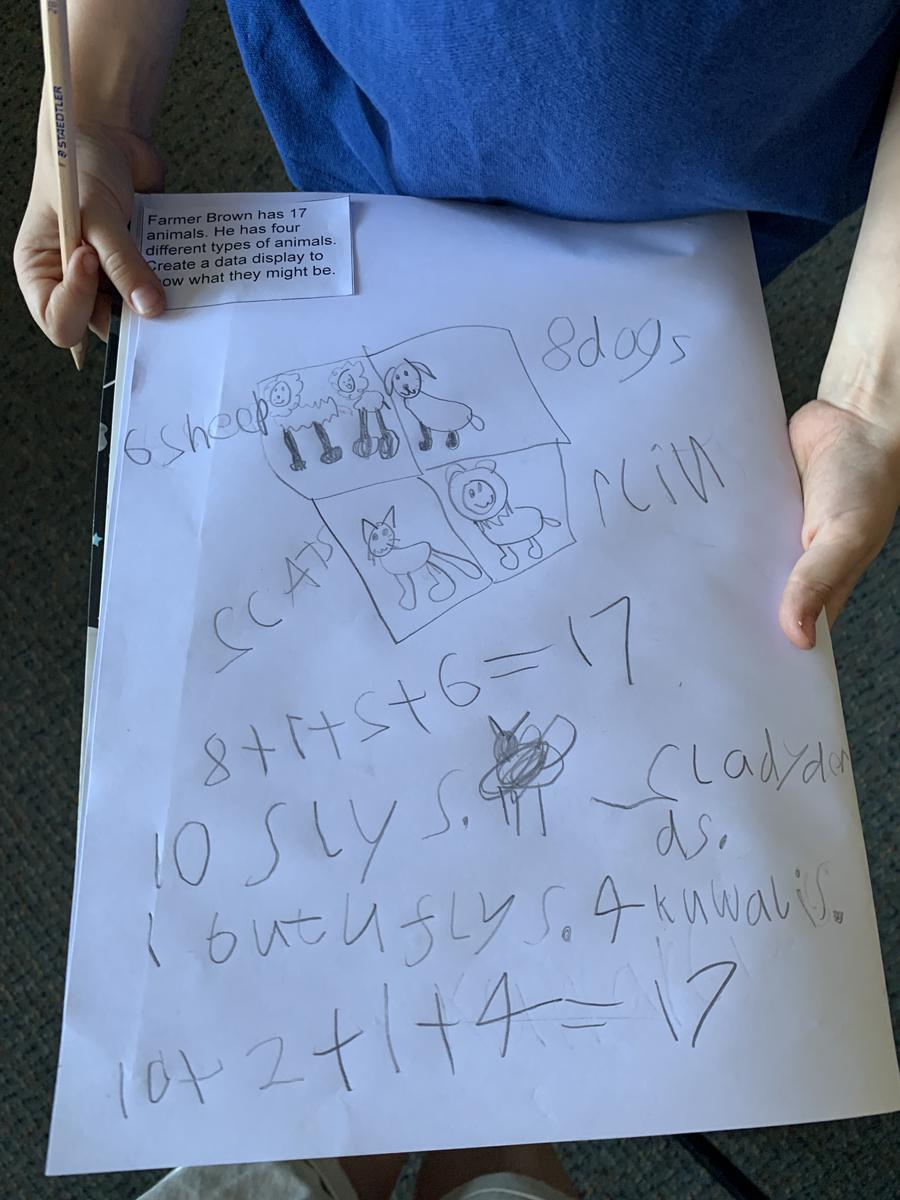 STAEDTLER
Farmer Brown has 17
animals. He has four
different types of animals.
Create a data display to
ow what they might be.
8dogs
6sheep
5CATS
8+1+5+6=17
10 flys.
ds.
1 butuflys. 4kuwalis.
10+2+1+4=17